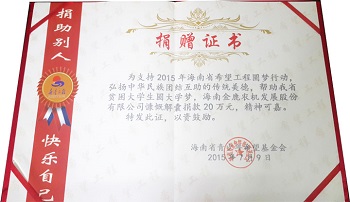 捐助别人
快乐自己
捐赠证书
为支持2015年海南省希望工程圆梦行动，
弘扬中华民族团结互助的传统美德，帮助我省
贫困大学生圆大学梦，海南金鹿农机发展股份
有限公司慷慨解囊捐款20万元，精神可嘉。
特发此证，以资鼓励。
海南省青少年希望基金会
2015年7月9日